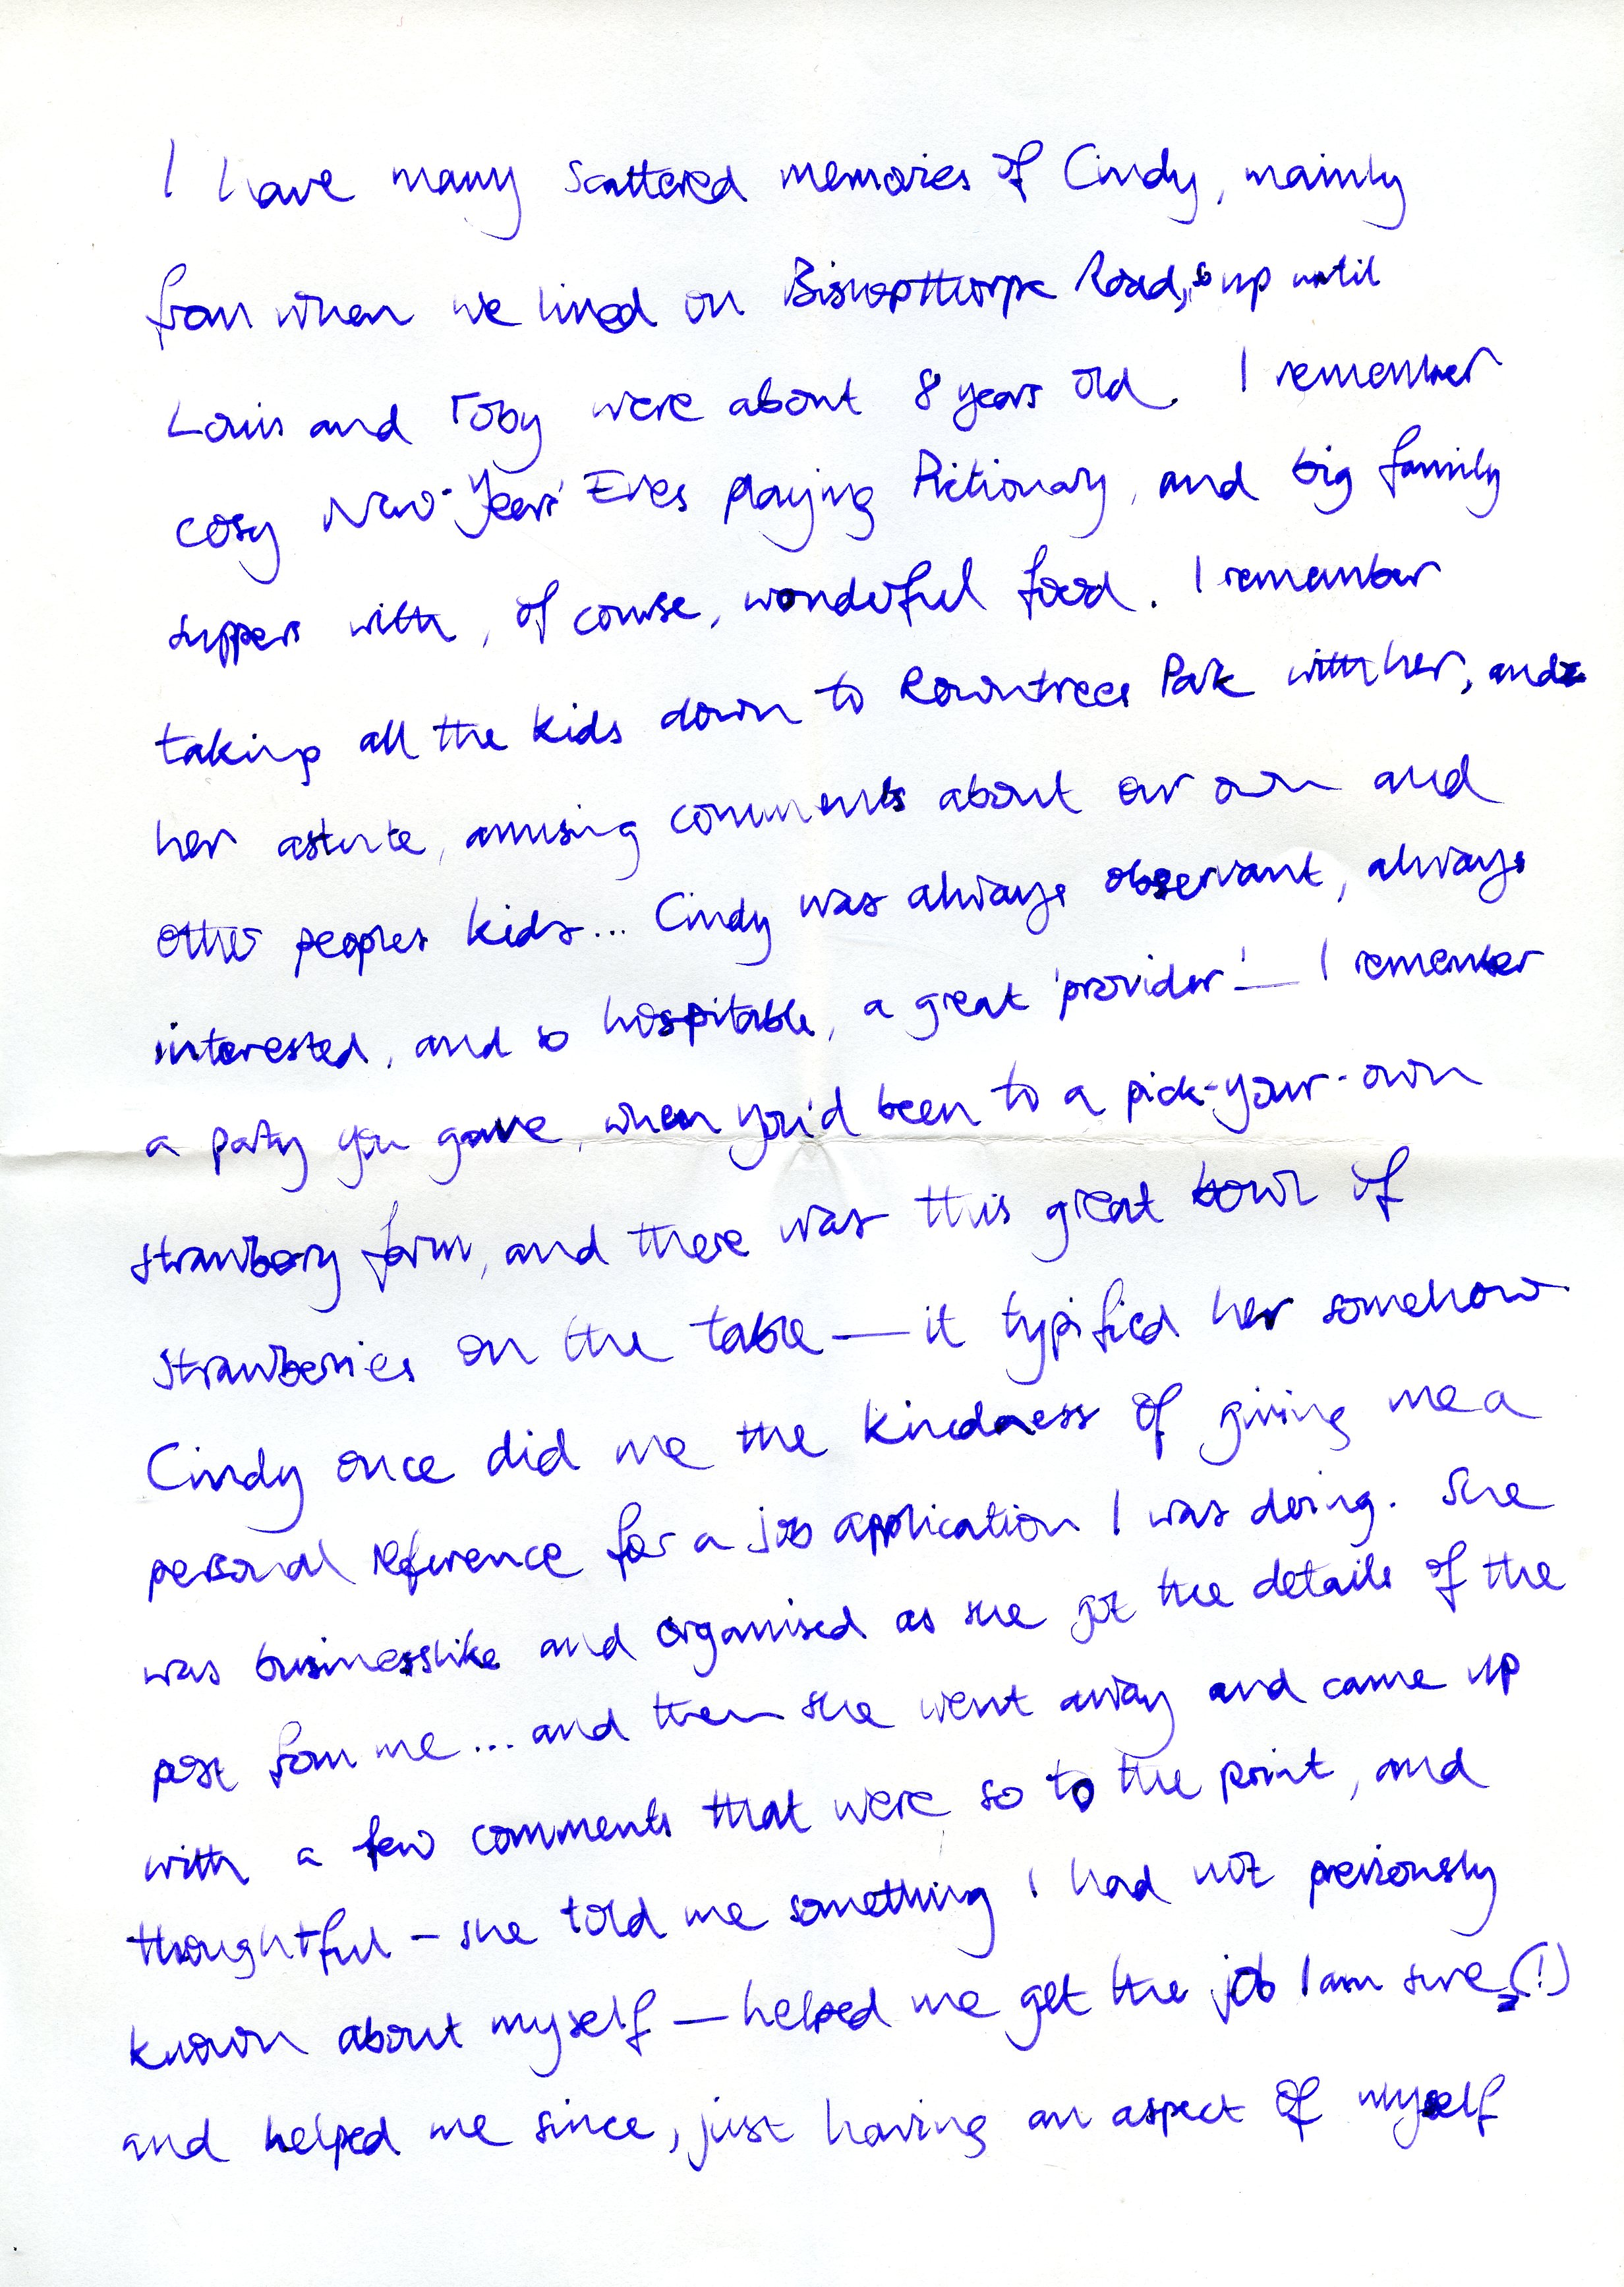 I have many scattered memories of Cindy, mainly
from when we lived on Bishopthorpe Road, up until
Louis and Toby were about 8 years old. I remember
cosy New-Years' Eves playing Pictionary, and big family
suppers with, of course, wonderful food. I remember
taking all the kids down to Rowntrees Park with her, and
her astute, amusing comments about our own and
other peoples kids... Cindy was always observant, always
interested, and so hospitable, a great 'provider' — I remember
a party you gave, when you'd been to a pick-your-own
strawberry farm, and there was this great bowl of
strawberries on the table — it typified her somehow
Cindy once did me the kindness of giving me a
personal reference for a job application I was doing. She
was businesslike and organised as she got the details of the
post from me... and then she went away and came up
with a few comments that were so to the point, and
thoughtful – she told me something I had not previously
known about myself — helped me get the job I am sure (!)
and helped me since, just having an aspect of myself